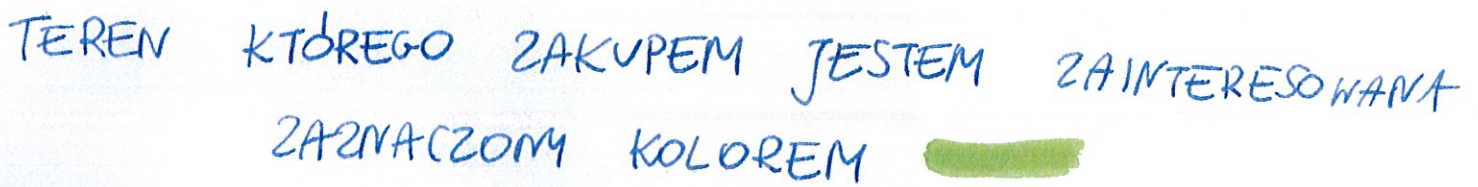 TEREN KTÓREGO ZAKUPEM JESTEM ZAINTERESOWANA
ZAZNACZONY KOLOREM